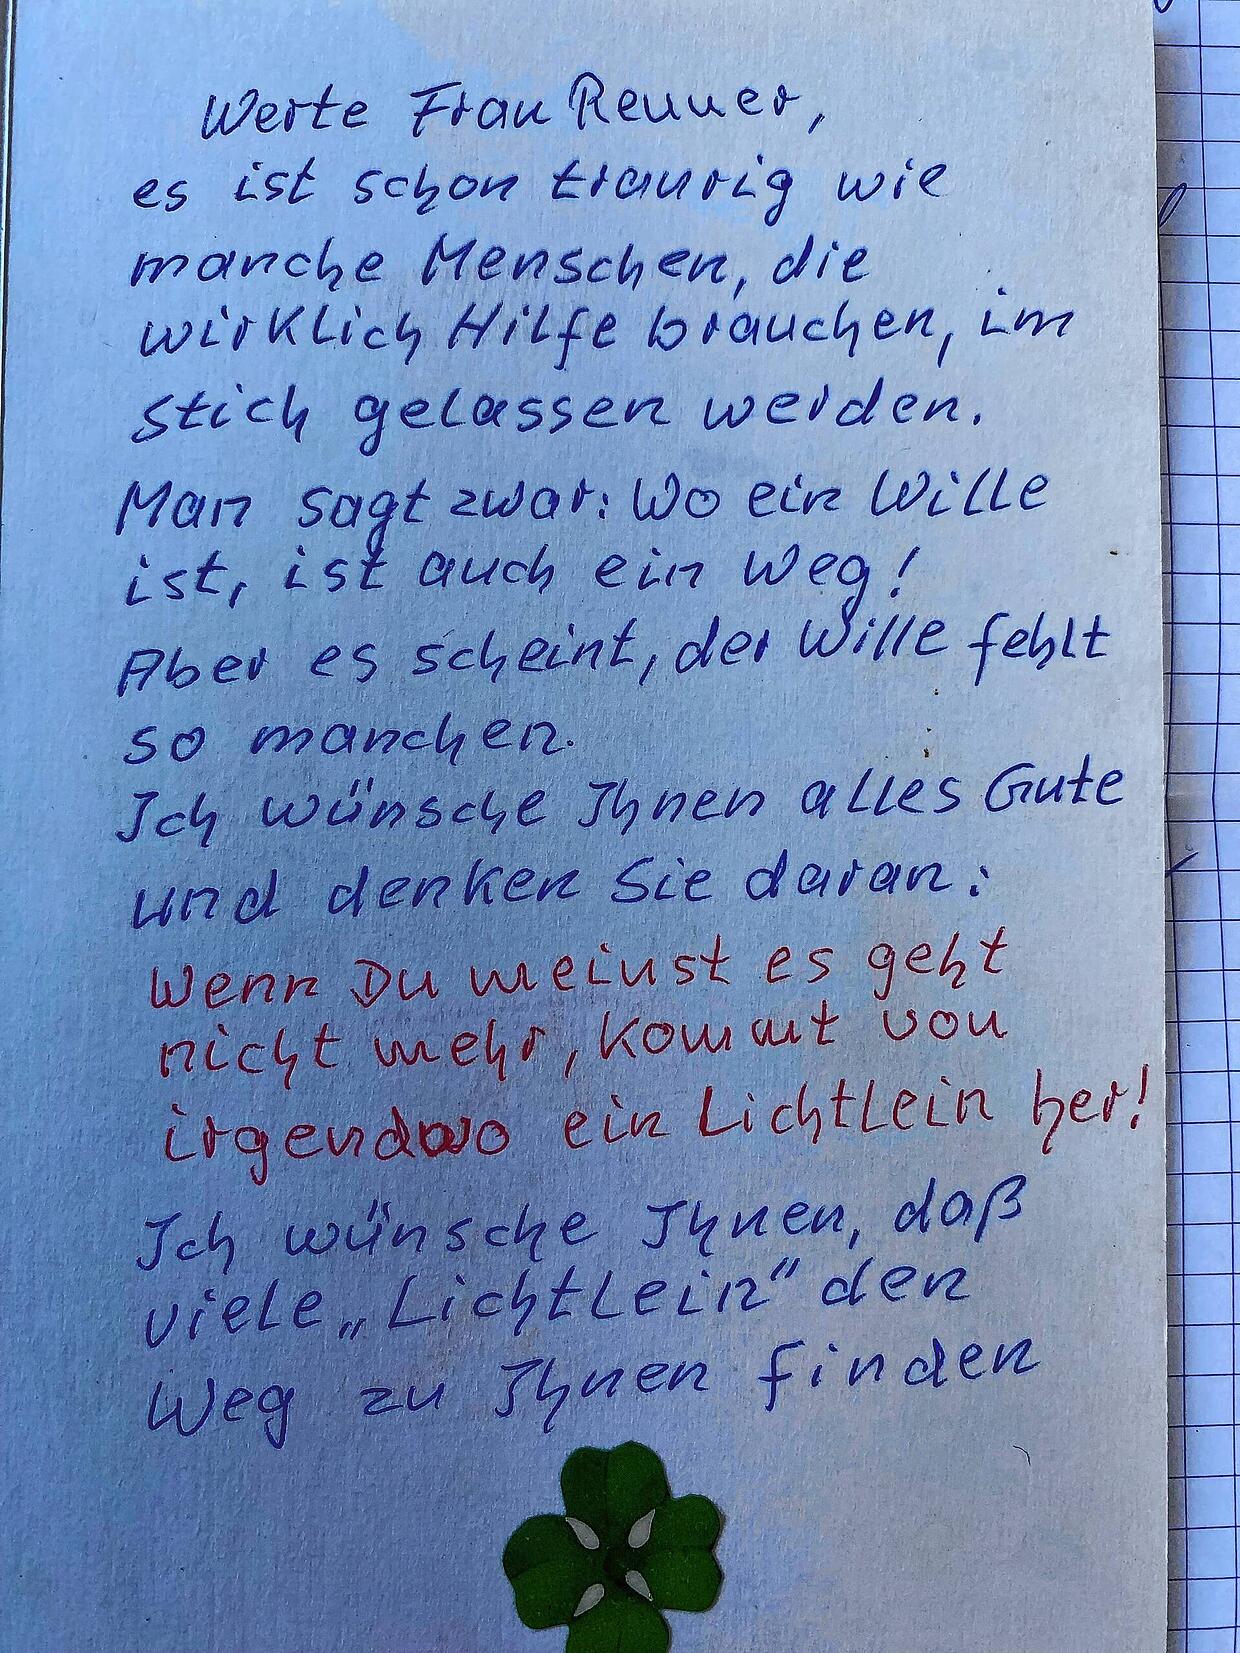 Werte Frau Renner,
es ist schon traurig wie
manche Menschen, die
wirklich Hilfe brauchen, im
stich gelassen werden.
Man sagt zwar: Wo ein Wille
ist, ist auch ein Weg!
Aber es scheint, der Wille fehlt
so manchen.
Ich wünsche Ihnen alles Gute
und denken Sie daran:
Wenn Du meinst es geht
nicht mehr, kommt von
irgendwo ein Lichtlein her!
Ich wünsche Ihnen, daß
viele „Lichtlein“ den
Weg zu Ihnen finden